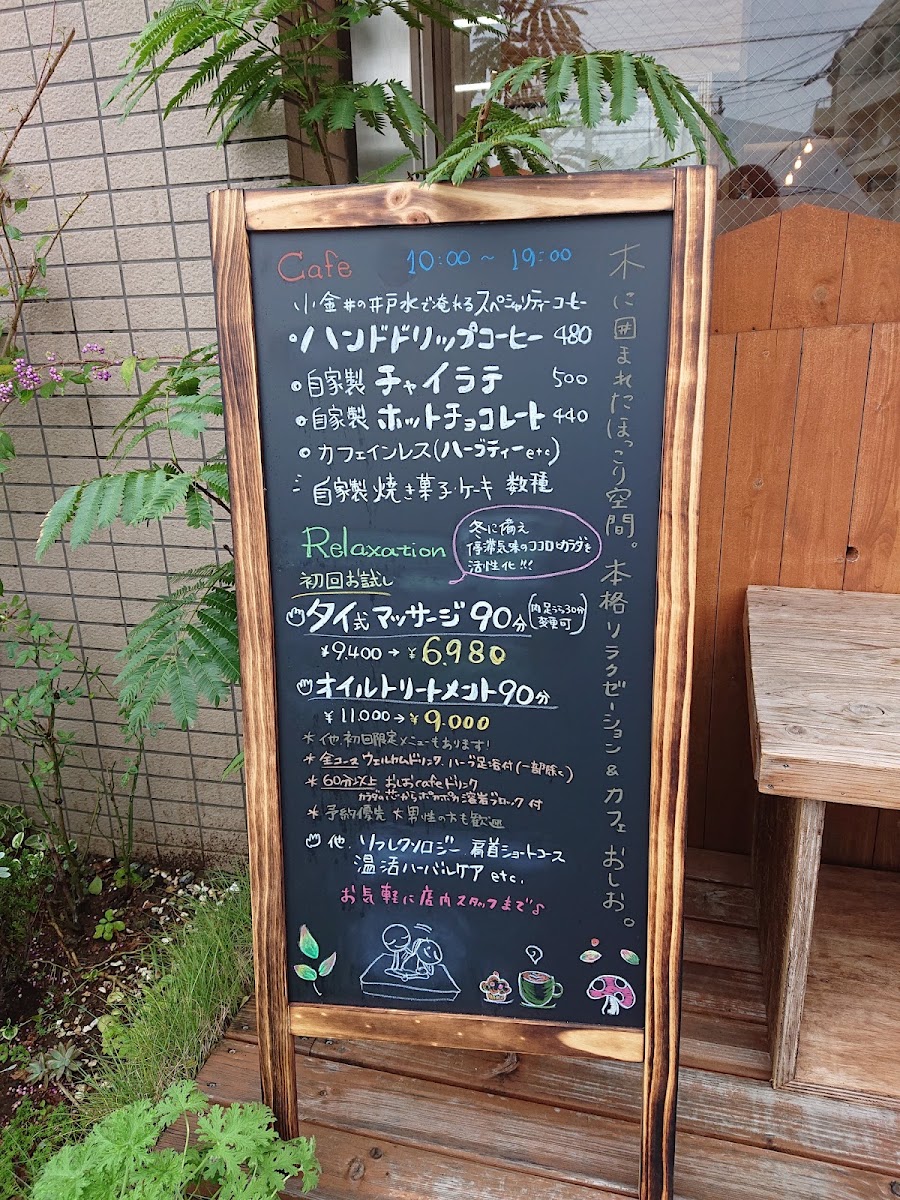 Cafe 10:00 ~ 19:00
小金井の井戸水で淹れるスペシャルティーコーヒー
ハンドドリップコーヒー 480
自家製 チャイラテ 500
自家製 ホットチョコレート 440
カフェインレス(ハーブティーetc)
自家製 焼き菓子・ケーキ 数種
Relaxation
冬に備え
停滞気味のココロとカラダを
活性化!!!
初回お試し
タイ式マッサージ 90分
(内足うら30分
変更可)
¥9.400→¥6.980
オイルトリートメント90分
¥11.000→¥9.000
*他、初回限定メニューもあります!
*全コース ウェルカムドリンク、ハーブ足浴付(一部除く)
*60分以上 おしおcafeドリンク
カラダの芯からポカポカ溶岩ブロック 付
*予約優先 *男性の方も歓迎
他、リフレクソロジー、肩首ショートコース
温活ハーバルケア etc.
お気軽に店内スタッフまで♪
木に囲まれたほっこり空間。本格リラクゼーション&カフェ おしお。